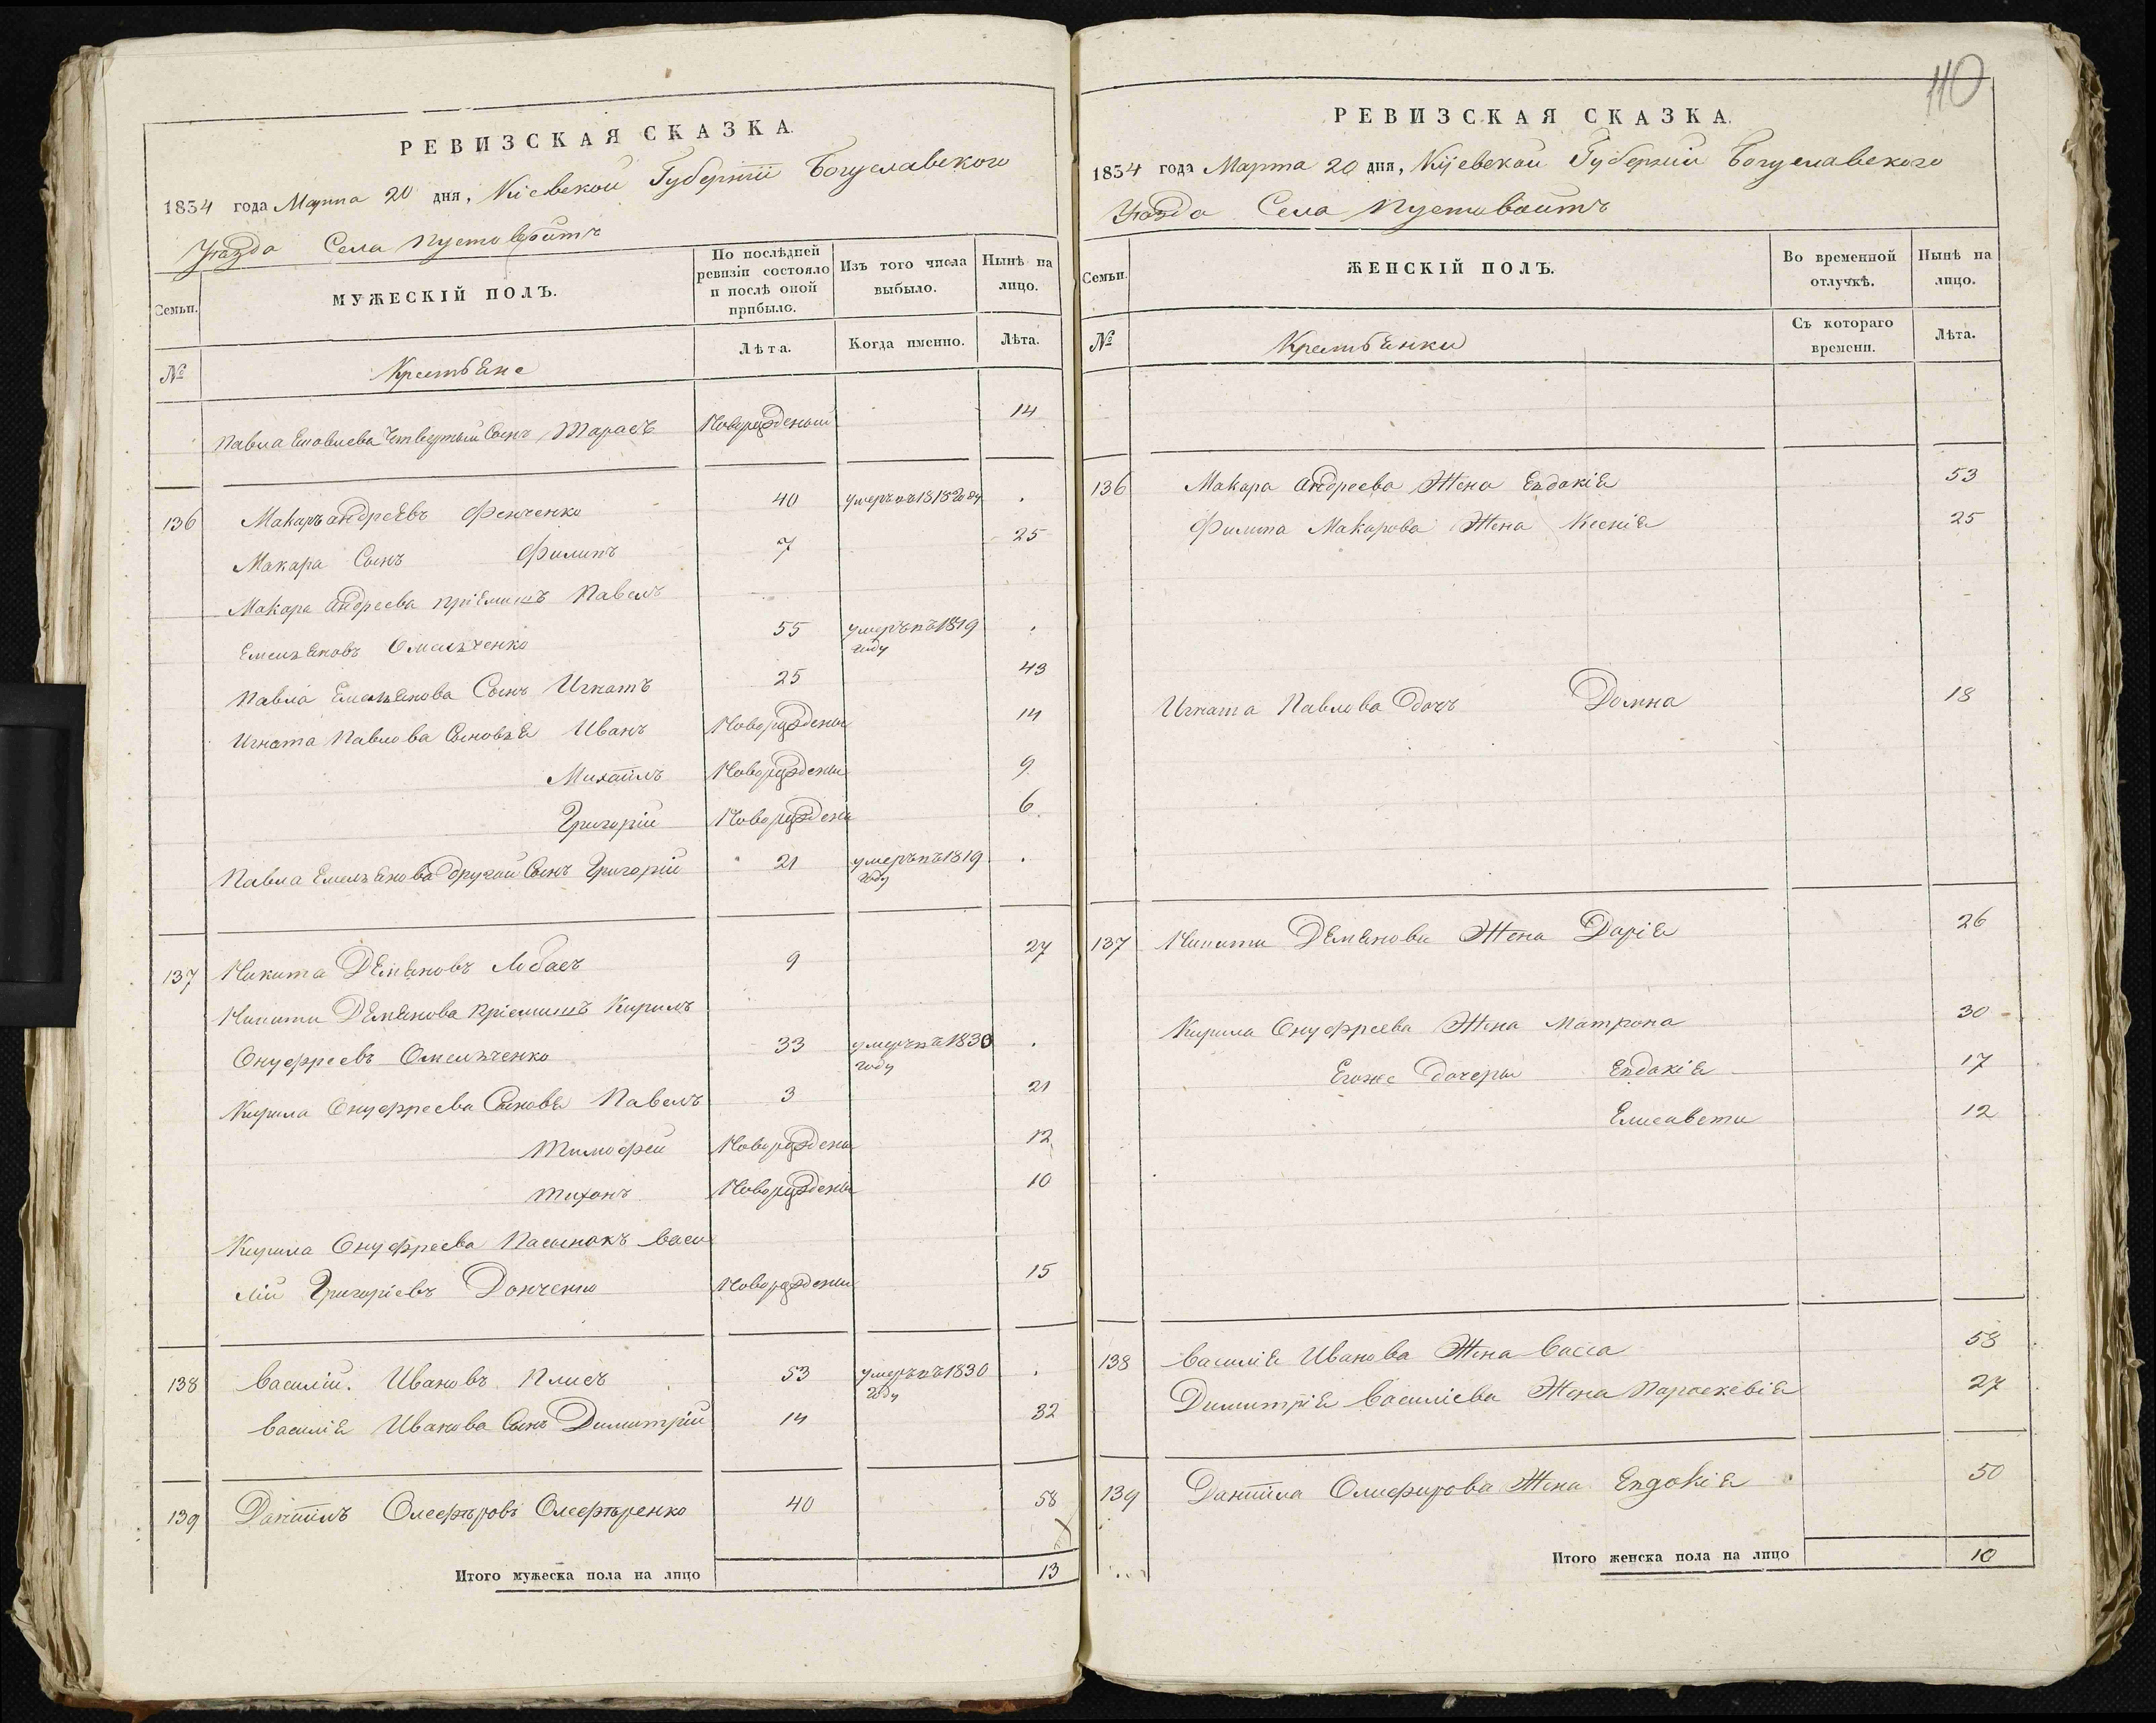 РЕВИЗСКАЯ СКАЗКА.
1834 года Марта 20 дня, Кіевской Губерніи Богуславского
Уѣзда Села Пустовойтъ
Семьи. МУЖЕСКІЙ ПОЛЪ. По послѣдней ревизіи состояло и послѣ оной прибыло. Изъ того числа выбыло. Нынѣ на лицо.
№ Крестьяне Лѣта. Когда именно. Лѣта.
Павла четвертый Сынъ Тарасъ Новорожденый 14
136 Макаръ андреевъ Фенченко 40 умеръ въ 1818 году .
Макара Сынъ Филипъ 7 25
Макара андреева пріемишъ Павелъ
Емельяновъ Омельченко 55 умеръ въ 1819 году .
Павла Емельянова Сынъ Игнатъ 25 43
Игната Павлова Сыновья Иванъ Новорожденый 14
Михаилъ Новорожденый 9
Григорій Новорожденый 6
Павла Емельянова другой Сынъ Григорій 21 умеръ въ 1819 году .
137 Никита Демяновъ Лобасъ 9 27
Никиты Демянова пріемишъ Кирилъ
Онуфреевъ Омельченко 33 умеръ въ 1830 году .
Кирила Онуфреева Сыновя Павелъ 3 21
Тимофей Новорожденый 12
Тихонъ Новорожденый 10
Кирила Онуфреева Пасынокъ Васи
лій Григоріевъ Донченко Новорожденый 15
138 Василій Ивановъ Плисъ 53 умеръ въ 1830 году .
Василія Иванова Сынъ Димитрій 14 32
139 Даніилъ Олефѣровъ Олефѣренко 40 58
Итого мужеска пола на лицо 13
110
РЕВИЗСКАЯ СКАЗКА.
1834 года Марта 20 дня, Кіевской Губерніи Богуславского
Уѣзда Села Пустовойтъ
Семьи. ЖЕНСКІЙ ПОЛЪ. Во временной отлучкѣ. Нынѣ на лицо.
№ Крестьянки Съ котораго времени. Лѣта.
136 Макара андреева Жена Евдокія 53
Филипа Макарова Жена Ксенія 25
Игната Павлова дочь Домна 18
137 Никиты Демянова Жена Дарія 26
Кирила Онуфреева Жена Матрона 30
Егоже дочеры Евдокія 17
Елисавета 12
138 Василія Иванова Жена Васса 58
Димитрія Василіева Жена Параскевія 27
139 Даніила Олифирова Жена Евдокія 50
Итого женска пола на лицо 10